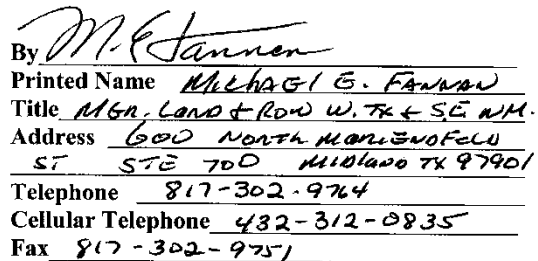 By M. E. Fannan
Printed Name Michael E. Fannan
Title MGR. Land & Row W. TX & S.E. NM.
Address 600 North Marienfeld
ST STE 700 Midland TX 97901
Telephone 817-302-9764
Cellular Telephone 432-312-0835
Fax 817-302-9751